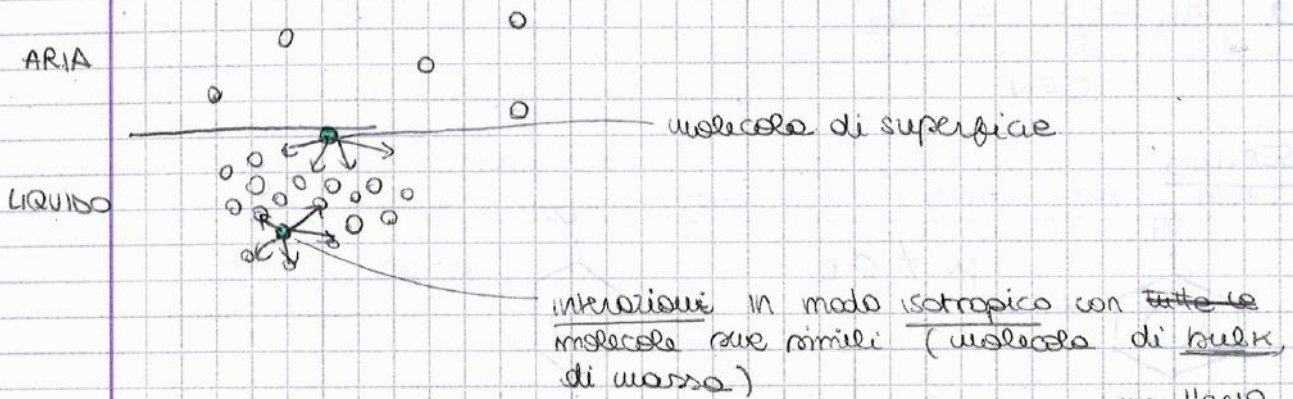 ARIA
molecola di superficie
LIQUIDO
interazioni in modo isotropico con tutte le
molecole sue simili (molecola di bulk,
di massa)